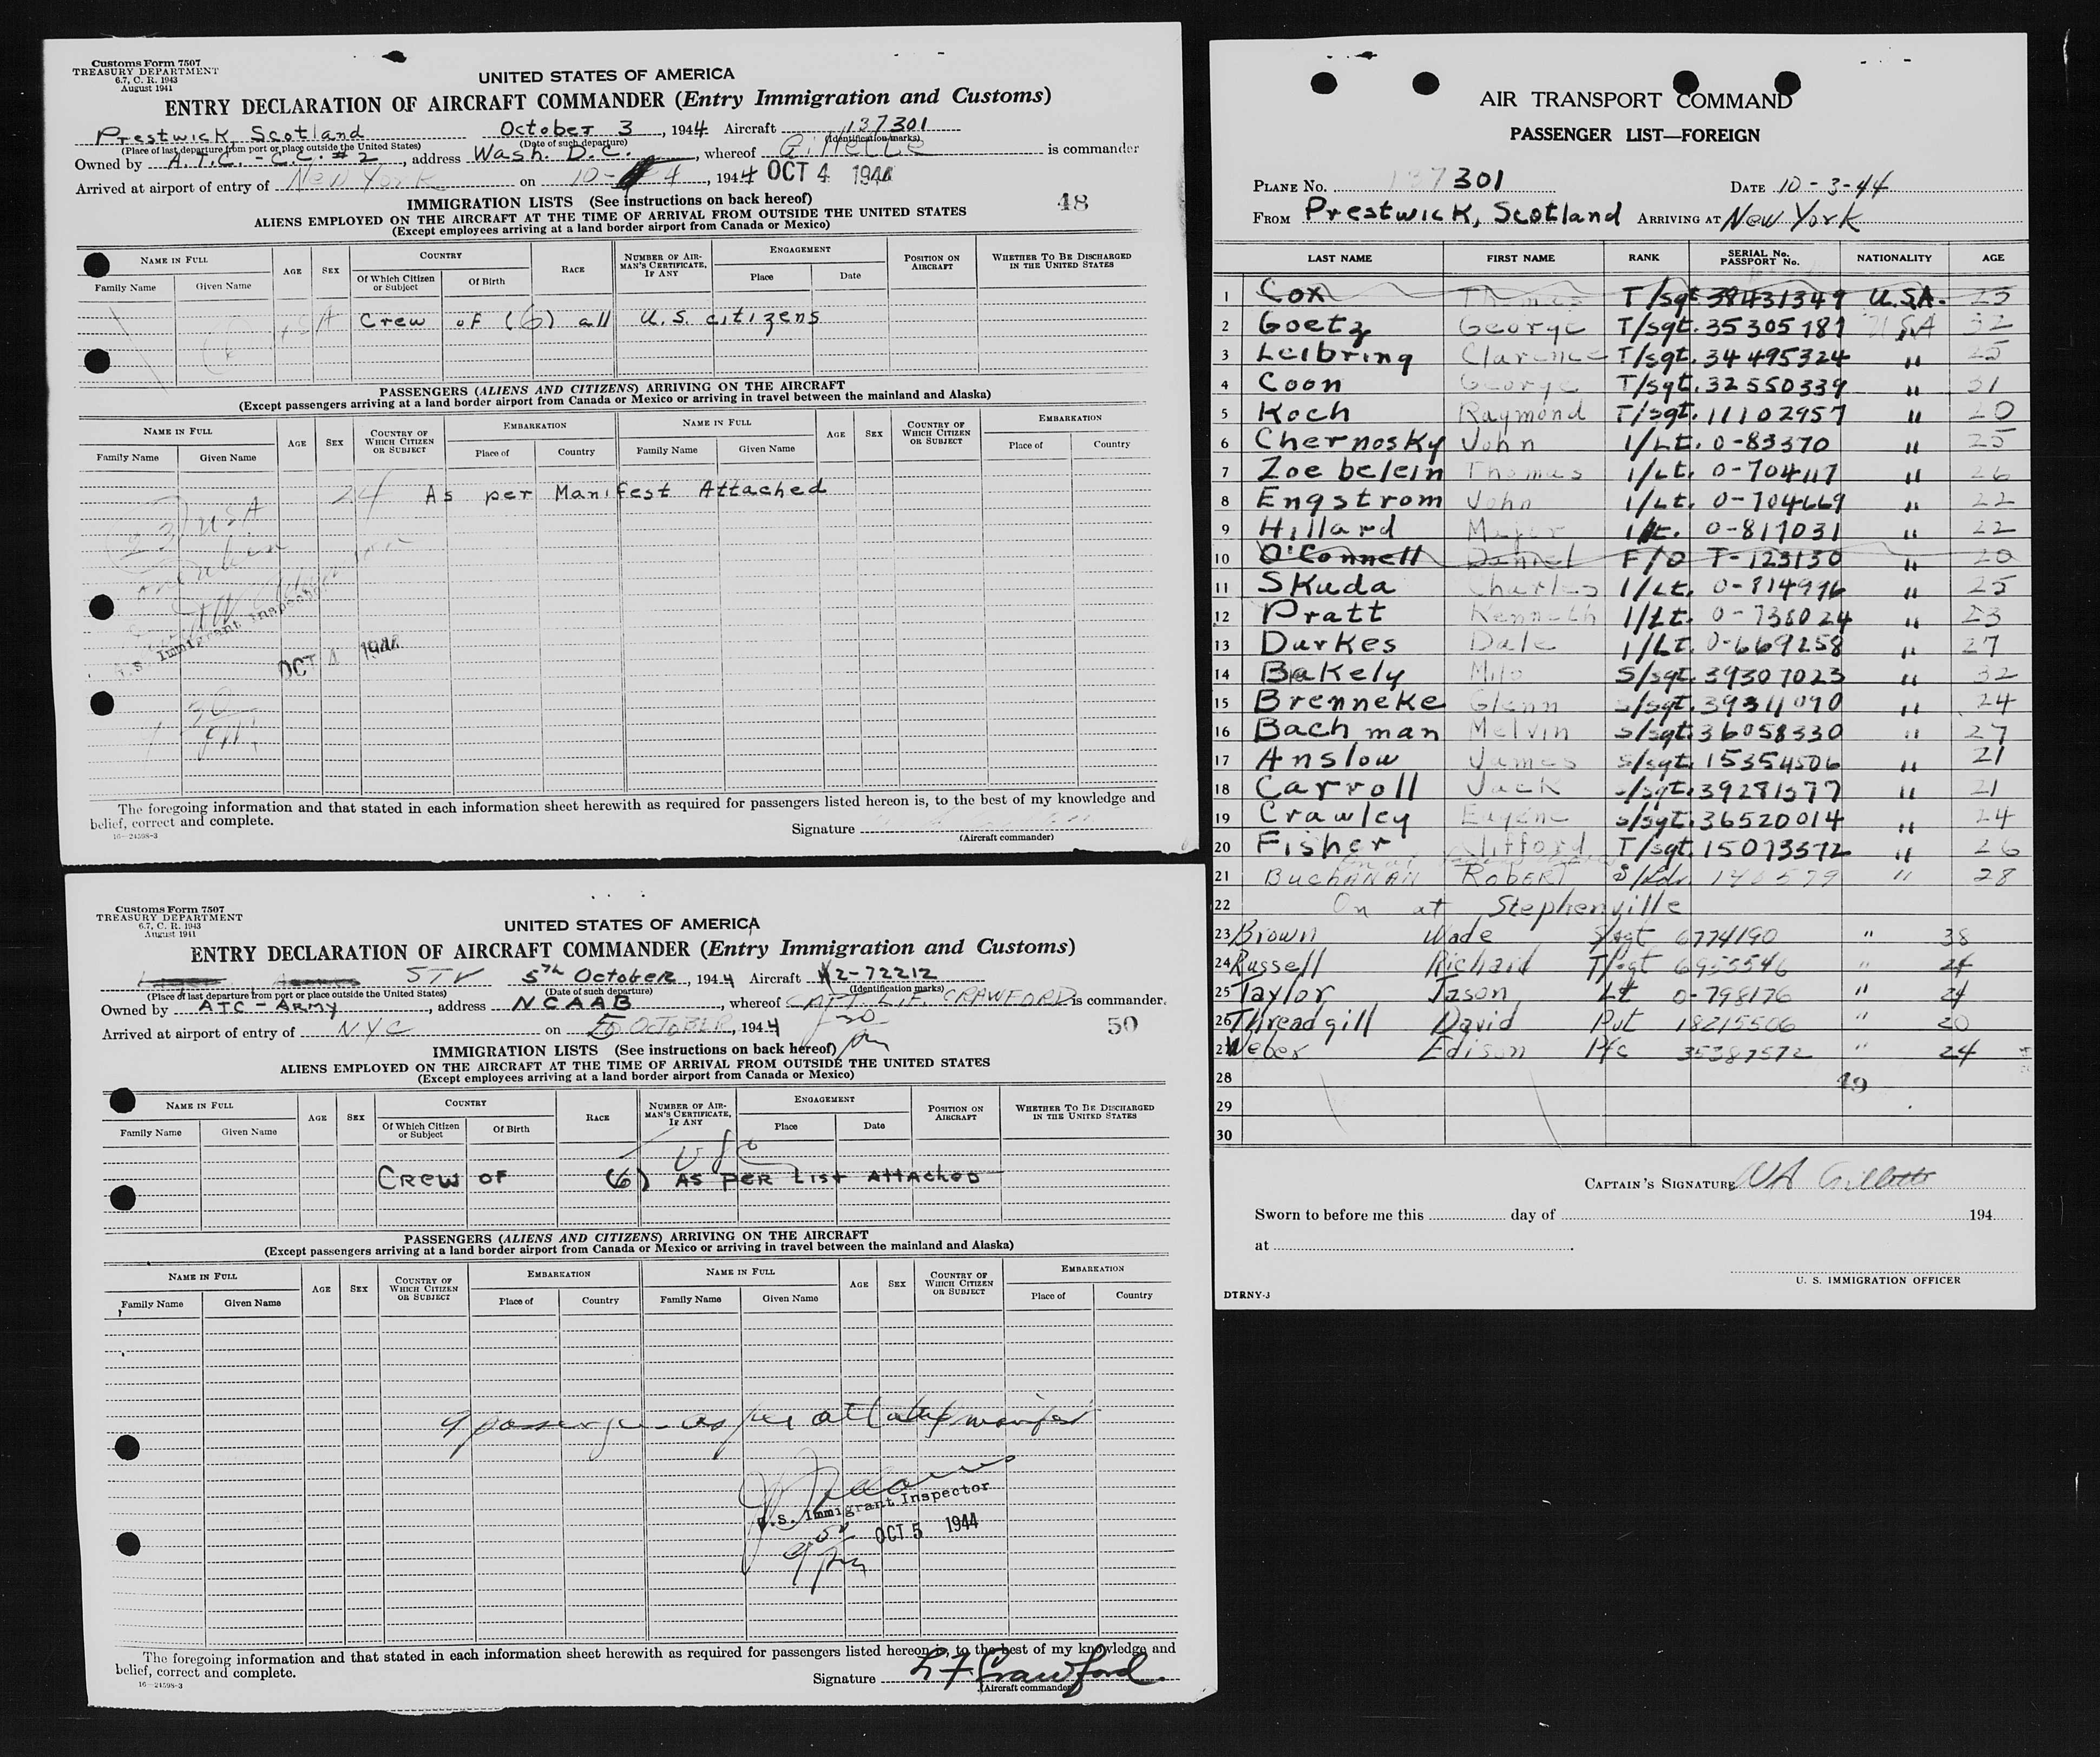 Customs Form 7507
TREASURY DEPARTMENT
6.7, C. R. 1943
August 1941
UNITED STATES OF AMERICA
ENTRY DECLARATION OF AIRCRAFT COMMANDER (Entry Immigration and Customs)
Prestwick, Scotland October 3, 1944 Aircraft 137301
(Place of last departure from port or place outside the United States) (Date of such departure) (Identification marks)
Owned by A.T.C. - C.C. #2, address Wash. D.C., whereof Gillette is commander
Arrived at airport of entry of New York on 10-4, 1944 OCT 4 1944
IMMIGRATION LISTS (See instructions on back hereof) 48
ALIENS EMPLOYED ON THE AIRCRAFT AT THE TIME OF ARRIVAL FROM OUTSIDE THE UNITED STATES
(Except employees arriving at a land border airport from Canada or Mexico)
NAME IN FULL AGE SEX COUNTRY RACE NUMBER OF AIRMAN'S CERTIFICATE, IF ANY ENGAGEMENT POSITION ON AIRCRAFT WHETHER TO BE DISCHARGED IN THE UNITED STATES
Family Name Given Name Of Which Citizen or Subject Of Birth Place Date
Crew of (6) all U.S. citizens
PASSENGERS (ALIENS AND CITIZENS) ARRIVING ON THE AIRCRAFT
(Except passengers arriving at a land border airport from Canada or Mexico or arriving in travel between the mainland and Alaska)
NAME IN FULL AGE SEX COUNTRY OF WHICH CITIZEN OR SUBJECT EMBARKATION NAME IN FULL AGE SEX COUNTRY OF WHICH CITIZEN OR SUBJECT EMBARKATION
Family Name Given Name Place of Country Family Name Given Name Place of Country
24 As per Manifest Attached
23 USA
U.S. Immigrant Inspector
OCT 4 1944
30
The foregoing information and that stated in each information sheet herewith as required for passengers listed hereon is, to the best of my knowledge and
belief, correct and complete.
16—24598-3
Signature
(Aircraft commander)
Customs Form 7507
TREASURY DEPARTMENT
6.7, C. R. 1943
August 1941
UNITED STATES OF AMERICA
ENTRY DECLARATION OF AIRCRAFT COMMANDER (Entry Immigration and Customs)
STV 5th October, 1944 Aircraft 42-72212
(Place of last departure from port or place outside the United States) (Date of such departure) (Identification marks)
Owned by ATC - Army, address NCAAB, whereof CAPT. L.F. CRAWFORD is commander.
Arrived at airport of entry of NYC on 5 OCTOBER, 1944
50
IMMIGRATION LISTS (See instructions on back hereof)
ALIENS EMPLOYED ON THE AIRCRAFT AT THE TIME OF ARRIVAL FROM OUTSIDE THE UNITED STATES
(Except employees arriving at a land border airport from Canada or Mexico)
NAME IN FULL AGE SEX COUNTRY RACE NUMBER OF AIRMAN'S CERTIFICATE, IF ANY ENGAGEMENT POSITION ON AIRCRAFT WHETHER TO BE DISCHARGED IN THE UNITED STATES
Family Name Given Name Of Which Citizen or Subject Of Birth Place Date
CREW OF (6) AS PER LIST ATTACHED
PASSENGERS (ALIENS AND CITIZENS) ARRIVING ON THE AIRCRAFT
(Except passengers arriving at a land border airport from Canada or Mexico or arriving in travel between the mainland and Alaska)
NAME IN FULL AGE SEX COUNTRY OF WHICH CITIZEN OR SUBJECT EMBARKATION NAME IN FULL AGE SEX COUNTRY OF WHICH CITIZEN OR SUBJECT EMBARKATION
Family Name Given Name Place of Country Family Name Given Name Place of Country
9 passengers as per attached manifest
U.S. Immigrant Inspector
OCT 5 1944
The foregoing information and that stated in each information sheet herewith as required for passengers listed hereon is, to the best of my knowledge and
belief, correct and complete.
16—24598-3
Signature L F Crawford
(Aircraft commander)
AIR TRANSPORT COMMAND
PASSENGER LIST—FOREIGN
PLANE NO. 137301 DATE 10-3-44
FROM Prestwick, Scotland ARRIVING AT New York
LAST NAME FIRST NAME RANK SERIAL No. PASSPORT No. NATIONALITY AGE
1 Cox Thomas T/sgt 38431349 U.S.A. 25
2 Goetz George T/sgt. 35305187 USA 32
3 Leibring Clarence T/sgt. 34495324 " 25
4 Coon George T/sgt. 32550339 " 31
5 Koch Raymond T/sgt. 11102957 " 20
6 Chernosky John 1/Lt. 0-83370 " 25
7 Zoebelein Thomas 1/Lt. 0-704117 " 26
8 Engstrom John 1/Lt. 0-704669 " 22
9 Hillard Major 1/Lt. 0-817031 " 22
10 O'Connell Daniel F/O T-123130 " 20
11 Skuda Charles 1/Lt. 0-814996 " 25
12 Pratt Kenneth 1/Lt. 0-738024 " 23
13 Durkes Dale 1/Lt. 0-669258 " 27
14 Bakely Milo S/sgt. 39307023 " 32
15 Brenneke Glenn S/sgt. 39311090 " 24
16 Bachman Melvin S/sgt. 36058330 " 27
17 Anslow James S/sgt. 15354506 " 21
18 Carroll Jack S/sgt. 39281577 " 21
19 Crawley Eugene S/sgt. 36520014 " 24
20 Fisher Clifford T/sgt. 15073372 " 26
21 BUCHANAN ROBERT S/Ldr. 140579 " 28
22 On at Stephenville
23 Brown Wade S/sgt 6774190 " 38
24 Russell Richard T/sgt 6955546 " 24
25 Taylor Jason Lt 0-798176 " 24
26 Threadgill David Pvt 18215506 " 20
27 Weber Edison Pfc 35387572 " 24
28 49
29
30
CAPTAIN'S SIGNATURE WA Gillette
Sworn to before me this day of 194
at
U. S. IMMIGRATION OFFICER
DTRNY-3